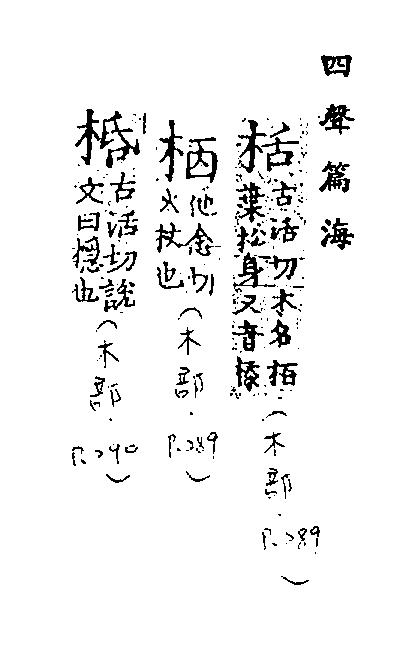 四聲篇海
栝
古活切木名栢
葉松身又音㮇
(木部.P.289)
他念切
火杖也
(木部.P.289)
古活切說
文曰檼也
(木部.P.290)